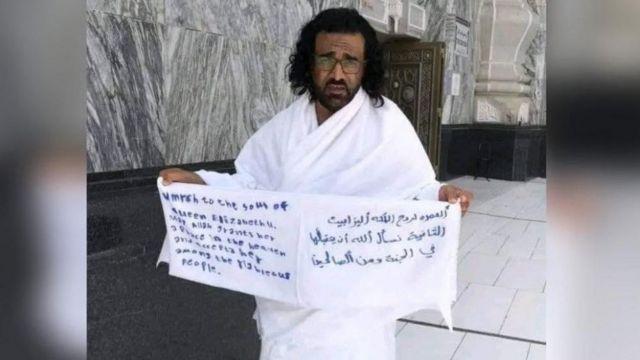 Umrah to the soul of
Queen Elizabeth II.
May Allah grants her
a place in the heaven
and accepts her
among the righteous
people.
العمرة لروح الملكه أليزابيث
الثانية نسأل الله أن يتقبلها
في الجنة ومن الصالحين